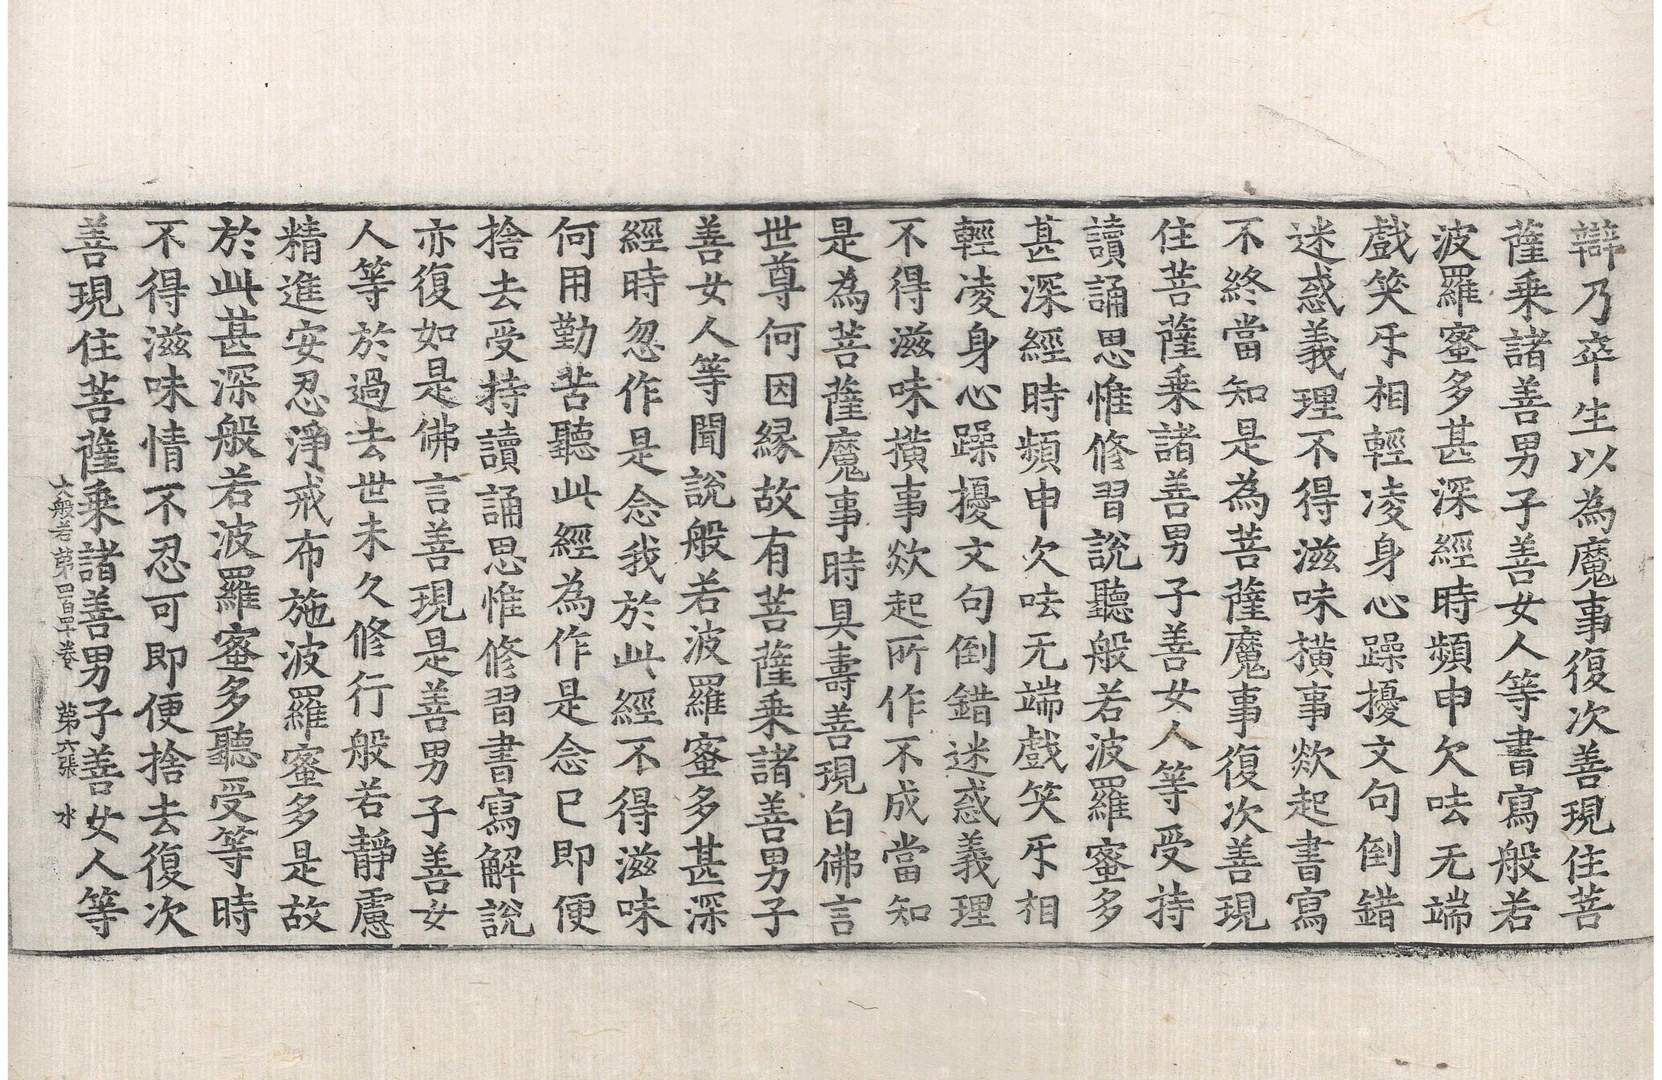 辯乃卒生以為魔事復次善現住菩
薩乗諸善男子善女人等書寫般若
波羅蜜多甚深經時頻申欠呿无端
戲笑㸦相輕凌身心躁擾文句倒錯
迷惑義理不得滋味撗事欻起書寫
不終當知是為菩薩魔事復次善現
住菩薩乗諸善男子善女人等受持
讀誦思惟修習說聽般若波羅蜜多
甚深經時頻申欠呿无端戲笑㸦相
輕凌身心躁擾文句倒錯迷惑義理
不得滋味撗事欻起所作不成當知
是為菩薩魔事時具壽善現白佛言
世尊何因縁故有菩薩乗諸善男子
善女人等聞說般若波羅蜜多甚深
經時忽作是念我於此經不得滋味
何用勤苦聽此經為作是念已即便
捨去受持讀誦思惟修習書寫解說
亦復如是佛言善現是善男子善女
人等於過去世未久修行般若靜慮
精進安忍淨戒布施波羅蜜多是故
於此甚深般若波羅蜜多聽受等時
不得滋味情不忍可即便捨去復次
善現住菩薩乗諸善男子善女人等
大般若第四百四十卷 第六張 水